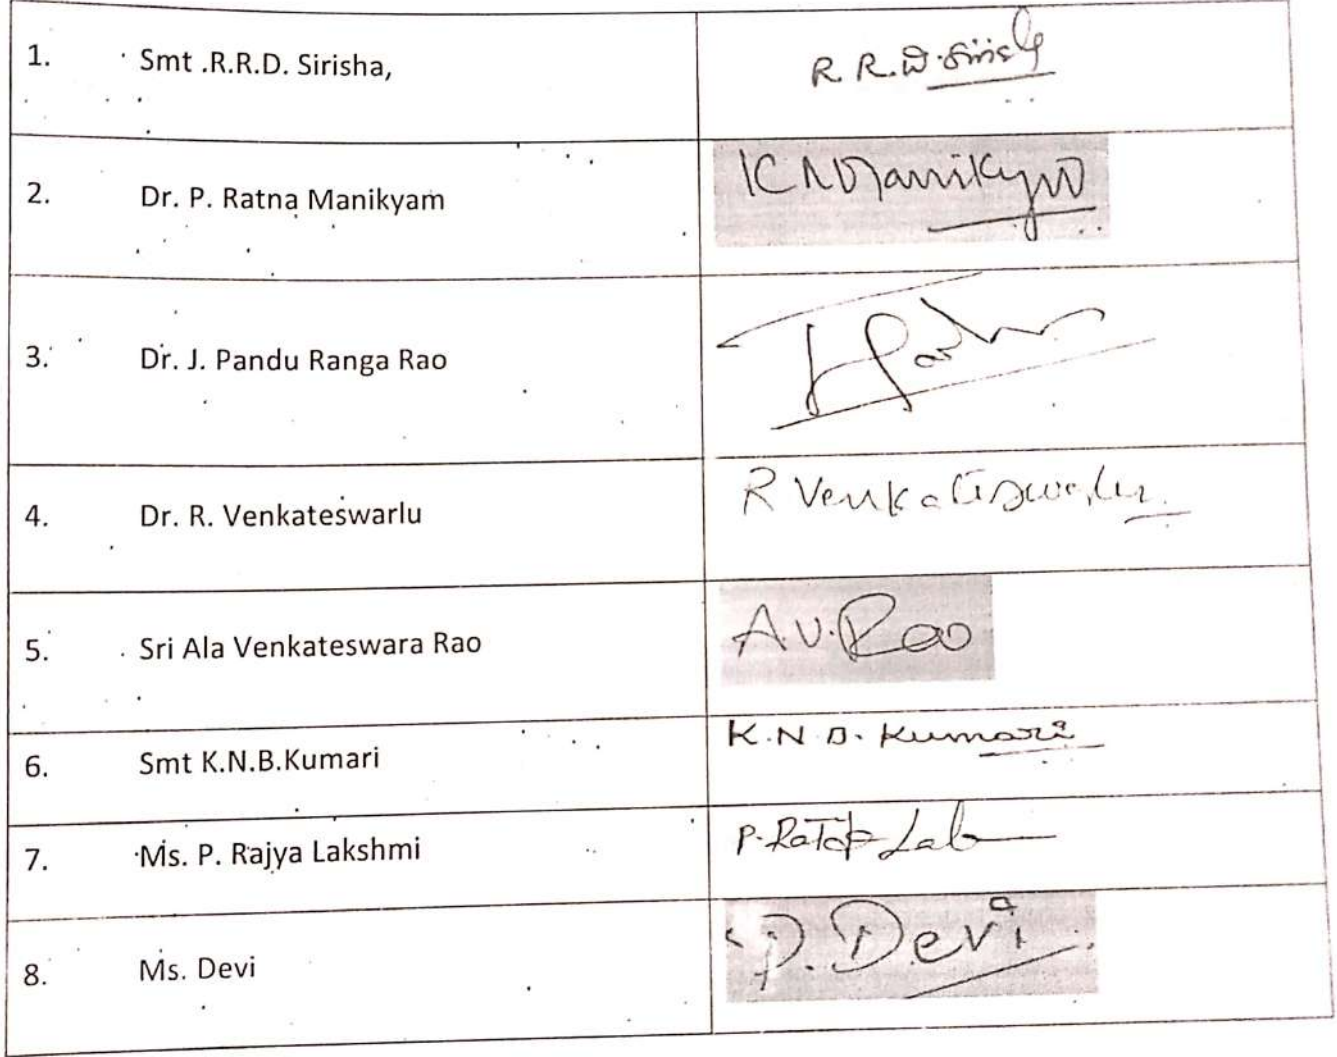 1. Smt .R.R.D. Sirisha, R. R. D. Sirish
2. Dr. P. Ratna Manikyam
3. Dr. J. Pandu Ranga Rao
4. Dr. R. Venkateswarlu R Venkateswarlu
5. Sri Ala Venkateswara Rao A.V.Rao
6. Smt K.N.B.Kumari K.N.B. Kumari
7. Ms. P. Rajya Lakshmi P.
8. Ms. Devi P. Devi